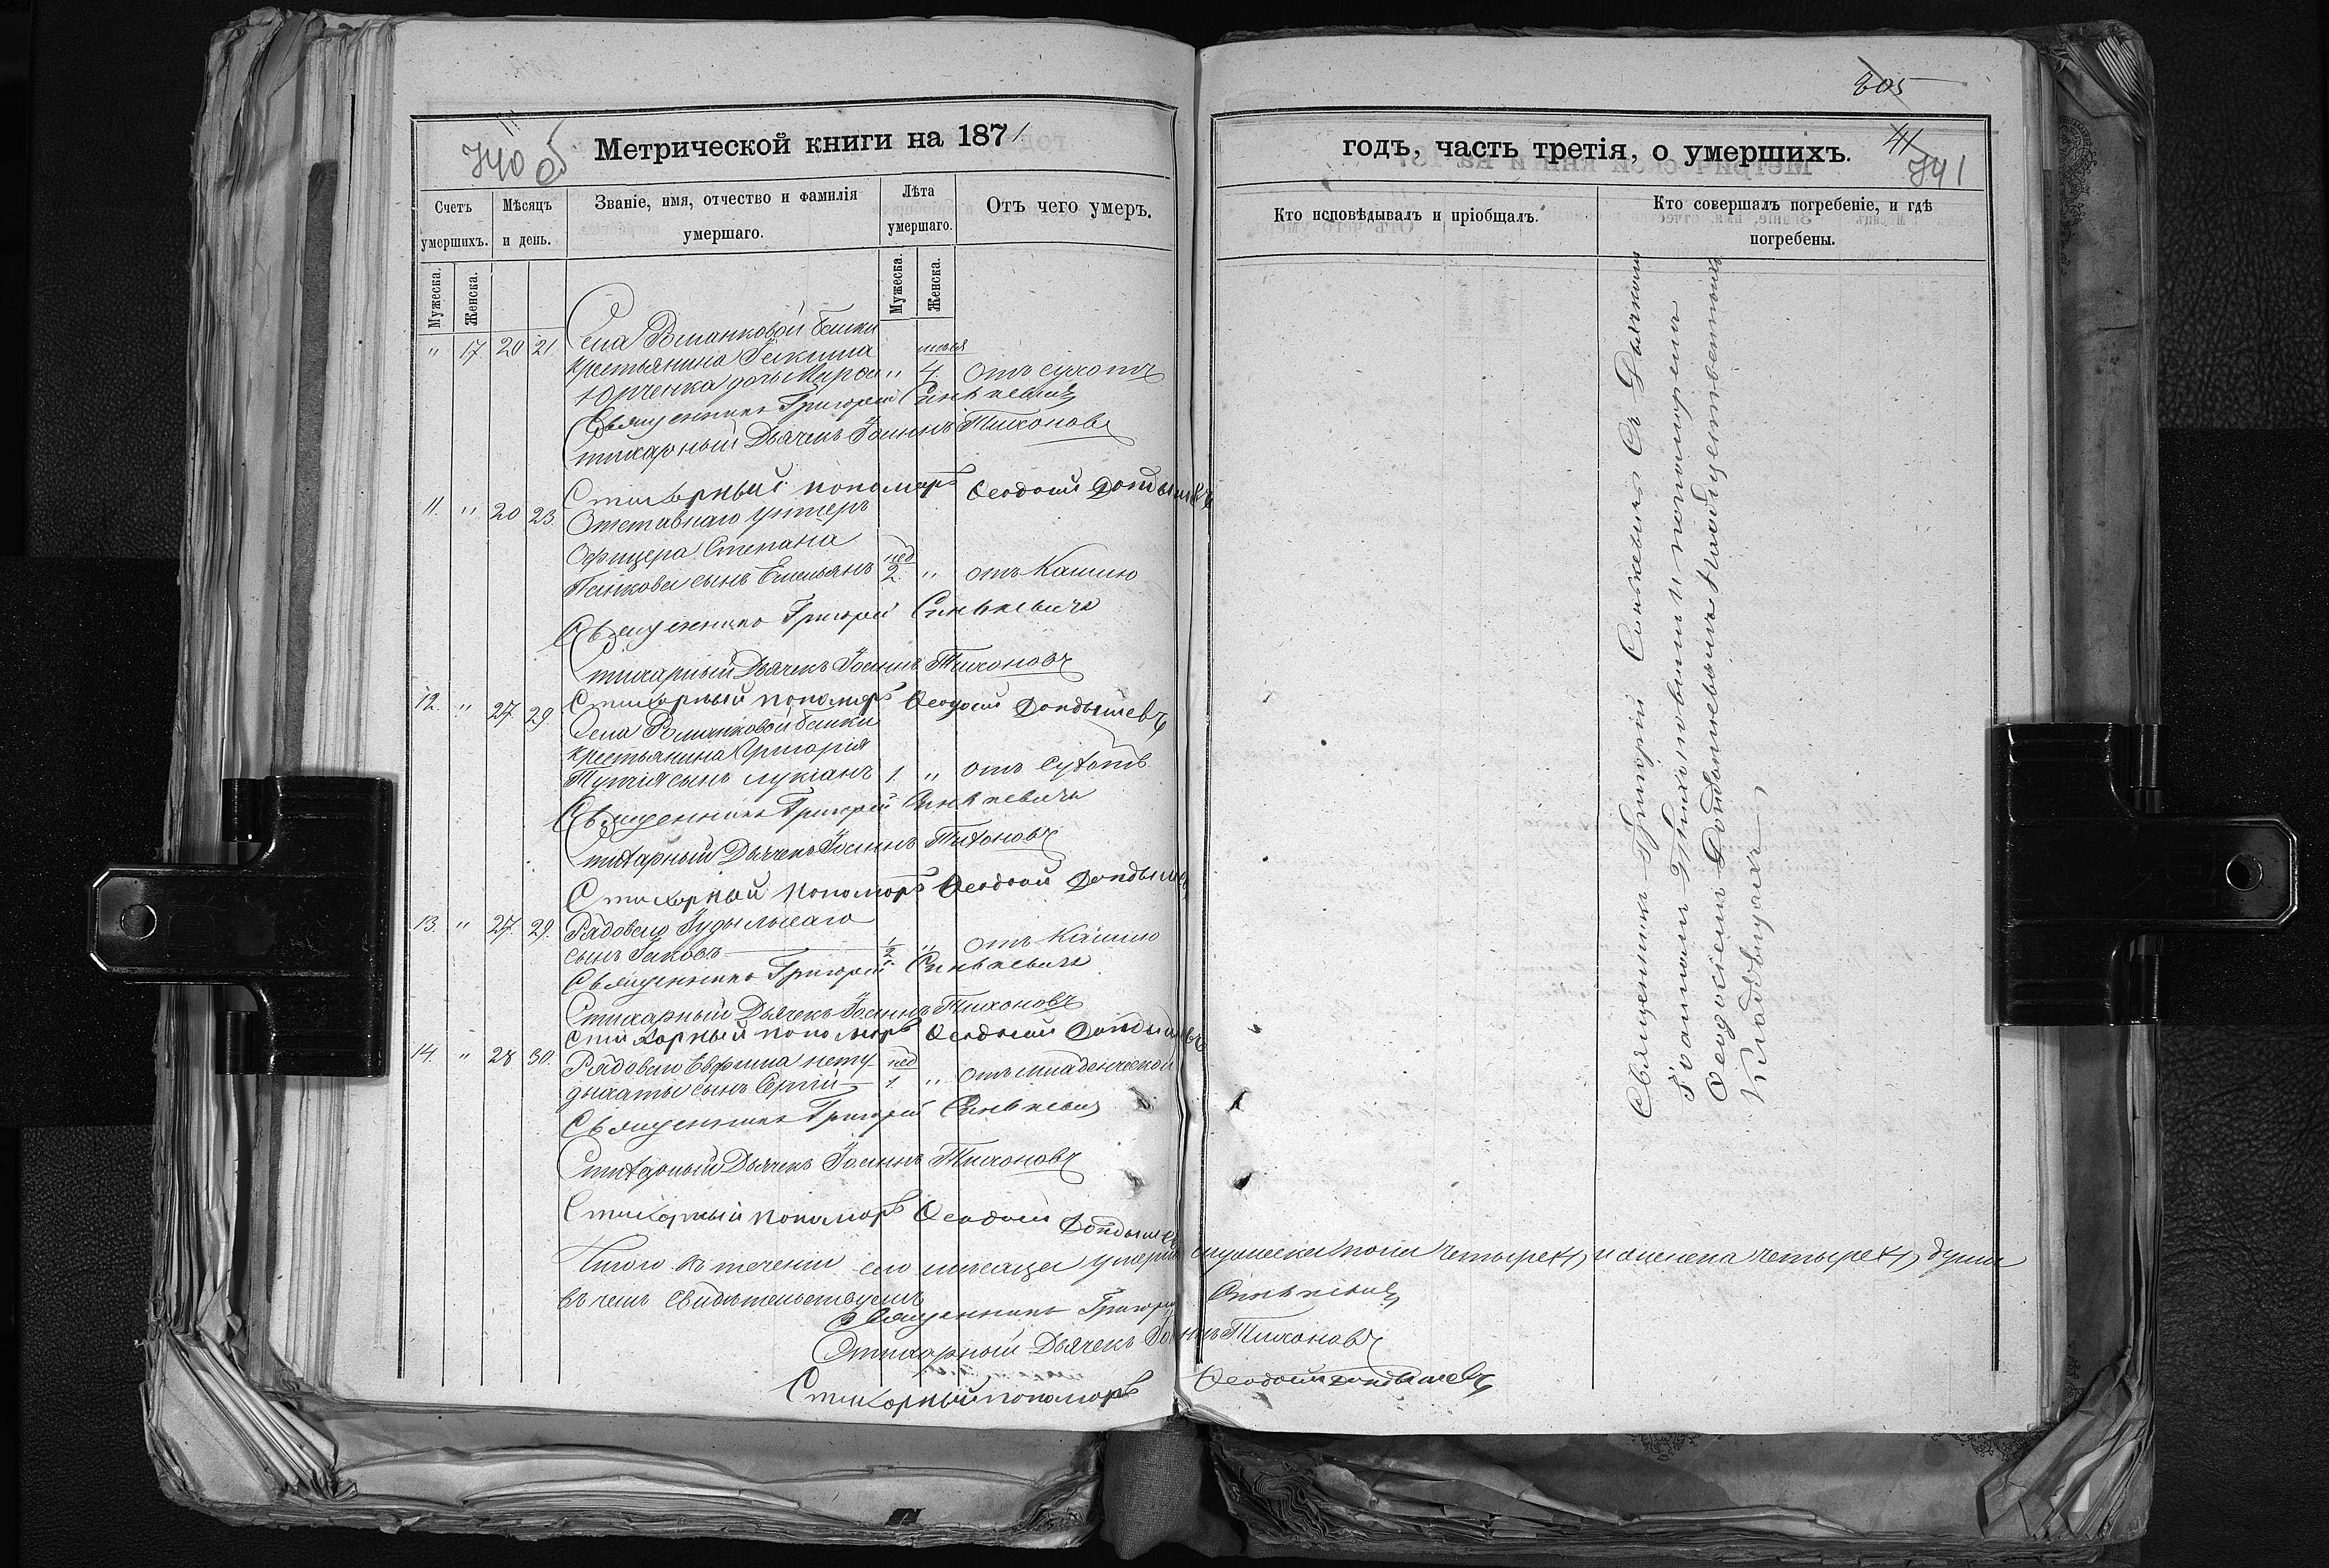 740 об
Метрической книги на 1871
Счетъ умершихъ.
Мѣсяцъ и день.
Званіе, имя, отчество и фамилія умершаго.
Лѣта умершаго.
Отъ чего умеръ.
Мужеска.
Женска.
Мужеска.
Женска.
Села Романковой балки
" 17 20 21. крестьянина
Юрченка дочь " 4 отъ сухотъ
Священникъ Григорій Синькевичъ
Стихарный Дьячекъ Іоаннъ Тихоновъ
Стихарный пономарь Ѳеодосій Дондышевъ
11. " 20 23. Отставнаго унтеръ
Офицера Степана
сынъ Емельянъ нед 2. " отъ Кашлю
Священникъ Григорій Синькевичъ
Стихарный Дьячекъ Іоаннъ Тихоновъ
Стихарный пономарь Ѳеодосій Дондышевъ
12. " 27 29 Села Романковой балки
крестьянина Григорія
сынъ Лукіанъ 1. " отъ Сухотъ
Священникъ Григорій Синькевичъ
Стихарный Дьячекъ Іоаннъ Тихоновъ
Стихарный пономарь Ѳеодосій Дондышевъ
13. " 27. 29. Рядоваго Іуды Лысаго
сынъ Іаковъ 1/2 " отъ Кашлю
Священникъ Григорій Синькевичъ
Стихарный Дьячекъ Іоаннъ Тихоновъ
Стихарный пономарь Ѳеодосій Дондышевъ
14. " 28 30. Рядоваго Евфима нету- нед
дыхаты сынъ Сергій 1. " отъ младенческой
Священникъ Григорій Синькевичъ
Стихарный Дьячекъ Іоаннъ Тихоновъ
Стихарный пономарь Ѳеодосій Дондышевъ
Итого въ теченіи сего мѣсяца умерло мужеска пола четыре(4) и женска четыре(4) души
въ чемъ свидѣтельствуемъ
Священникъ Григорій Синькевичъ
Стихарный Дьячекъ Іоаннъ Тихоновъ
Стихарный пономарь Ѳеодосій Дондышевъ
305
41
741
годъ, часть третія, о умершихъ.
Кто исповѣдывалъ и пріобщалъ.
Кто совершалъ погребеніе, и гдѣ погребены.
Священникъ Григорій Синькевичъ Съ Дьячкомъ
Іоанномъ Тихоновымъ и пономаремъ
Ѳеодосіемъ Дондышевымъ на общественномъ
Кладбищахъ